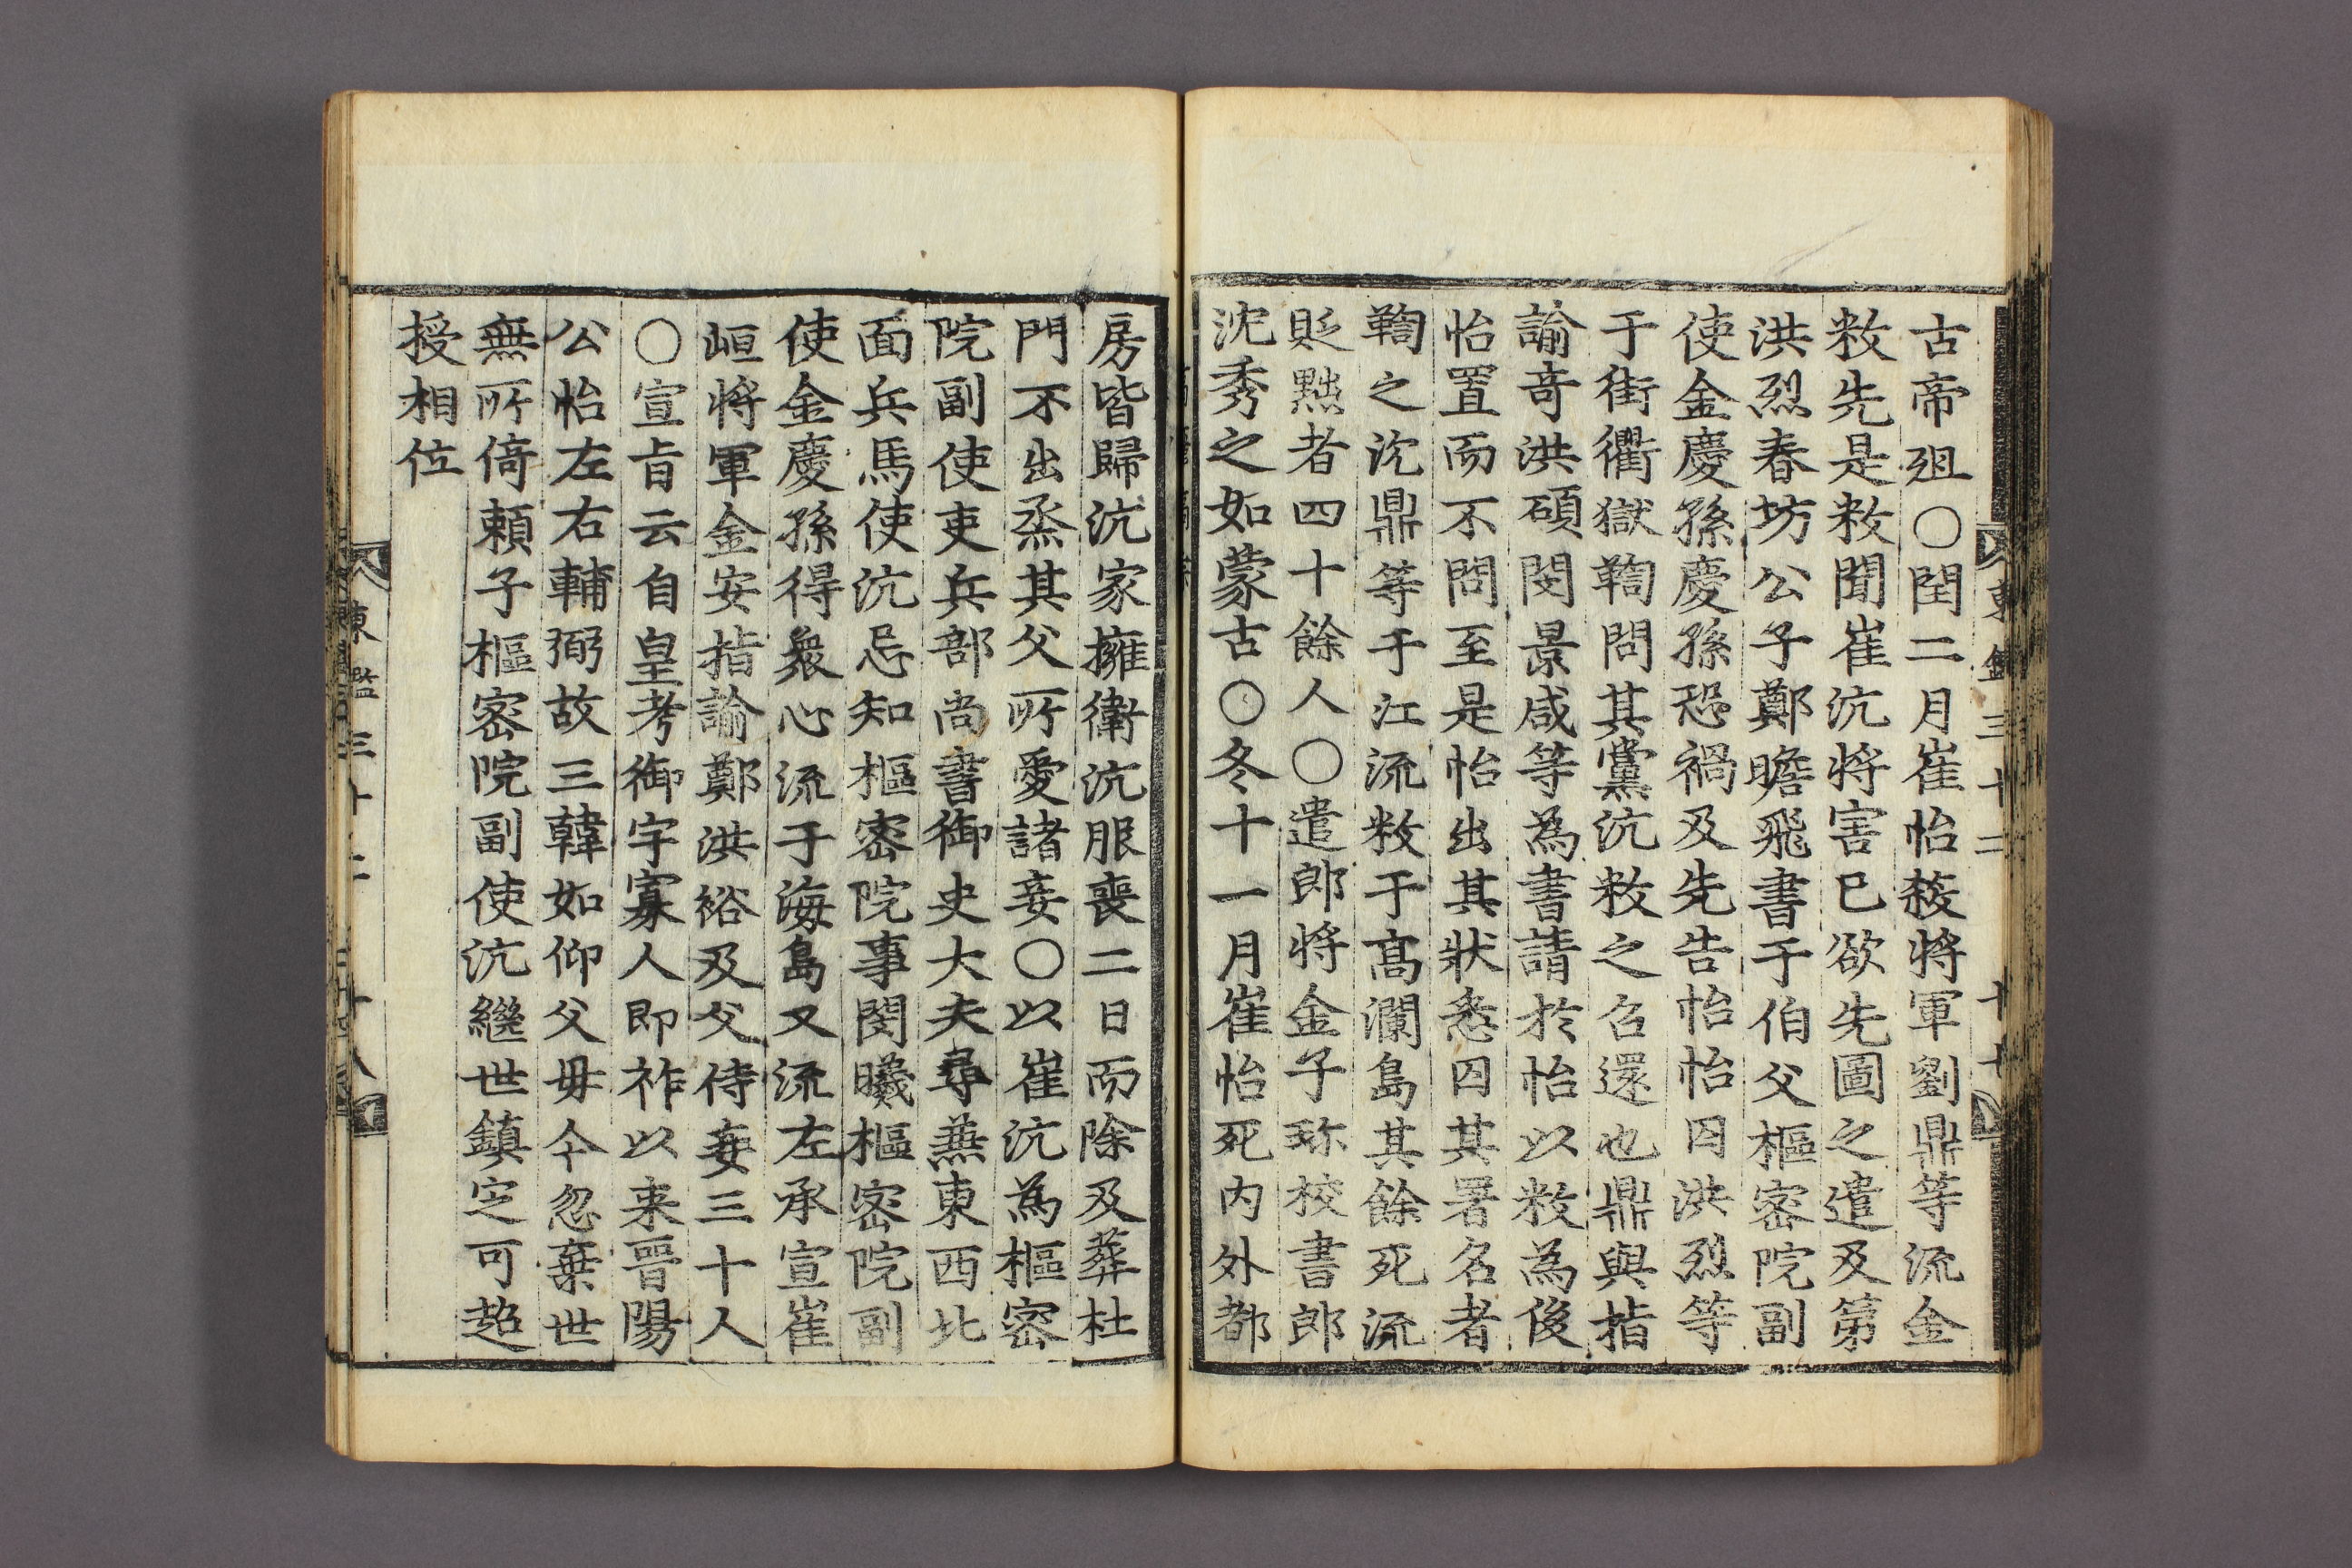 古帝殂○閏二月崔怡殺將軍劉鼎等流金
敉先是敉聞崔沆將害已欲先圖之遣及第
洪烈春坊公子鄭瞻飛書于伯父樞密院副
使金慶孫慶孫恐禍及先告怡怡囚洪烈等
于街衢獄鞫問其黨沆敉之召還也鼎與指
諭竒洪碩閔景咸等為書請於怡以敉為後
怡置而不問至是怡出其狀悉囚其署名者
鞫之沈鼎等于江流敉于髙瀾島其餘死流
貶黜者四十餘人○遣郎將金子珎校書郎
沈秀之如蒙古○冬十一月崔怡死内外都
東鑑三十二
房皆歸沆家擁衛沆服喪二日而除及葬杜
門不出烝其父所愛諸妾○以崔沆為樞密
院副使吏兵部尚書御史大夫尋兼東西北
面兵馬使沆忌知樞密院事閔曦樞密院副
使金慶孫得衆心流于海島又流左承宣崔
峘將軍金安指諭鄭洪裕及父侍妾三十人
○宣旨云自皇考御宇寡人即祚以来晋陽
公怡左右輔弼故三韓如仰父母今忽棄世
無所倚頼子樞密院副使沆繼世鎮定可超
授相位
東鑑三十二